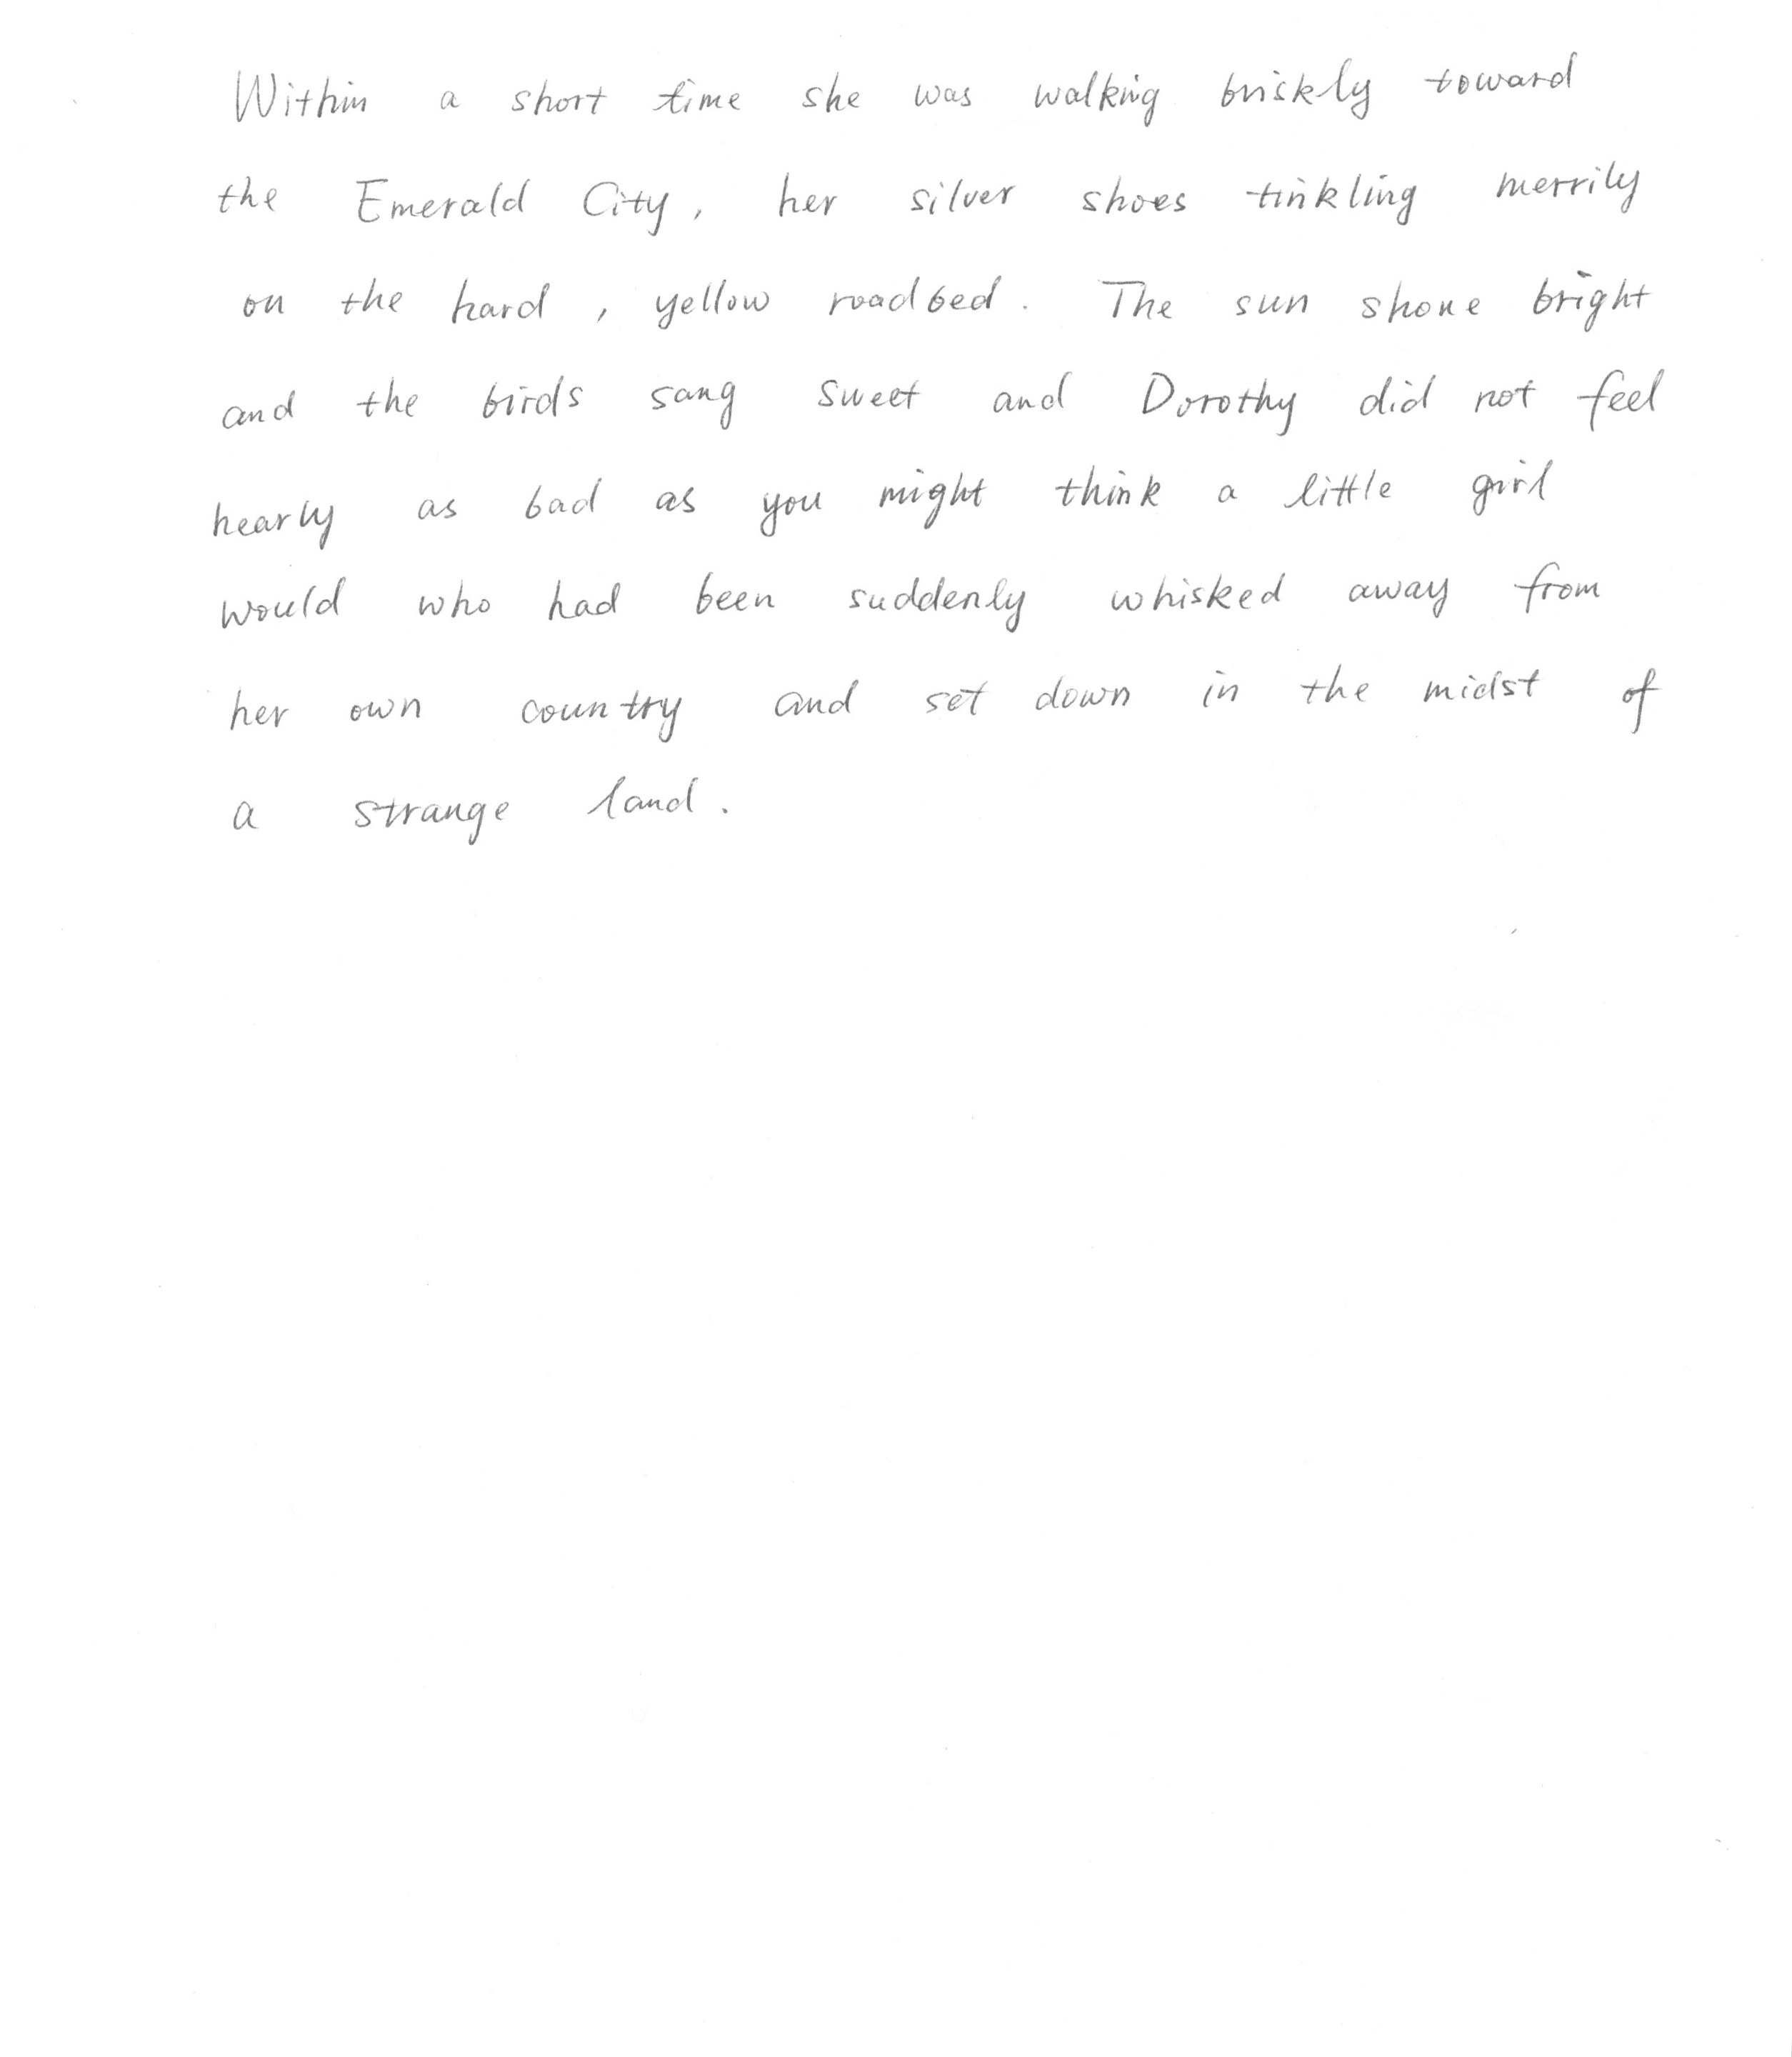 Within a short time she was walking briskly toward
the Emerald City, her silver shoes tinkling merrily
on the hard, yellow roadbed. The sun shone bright
and the birds sang sweet and Dorothy did not feel
nearly as bad as you might think a little girl
would who had been suddenly whisked away from
her own country and set down in the midst of
a strange land.